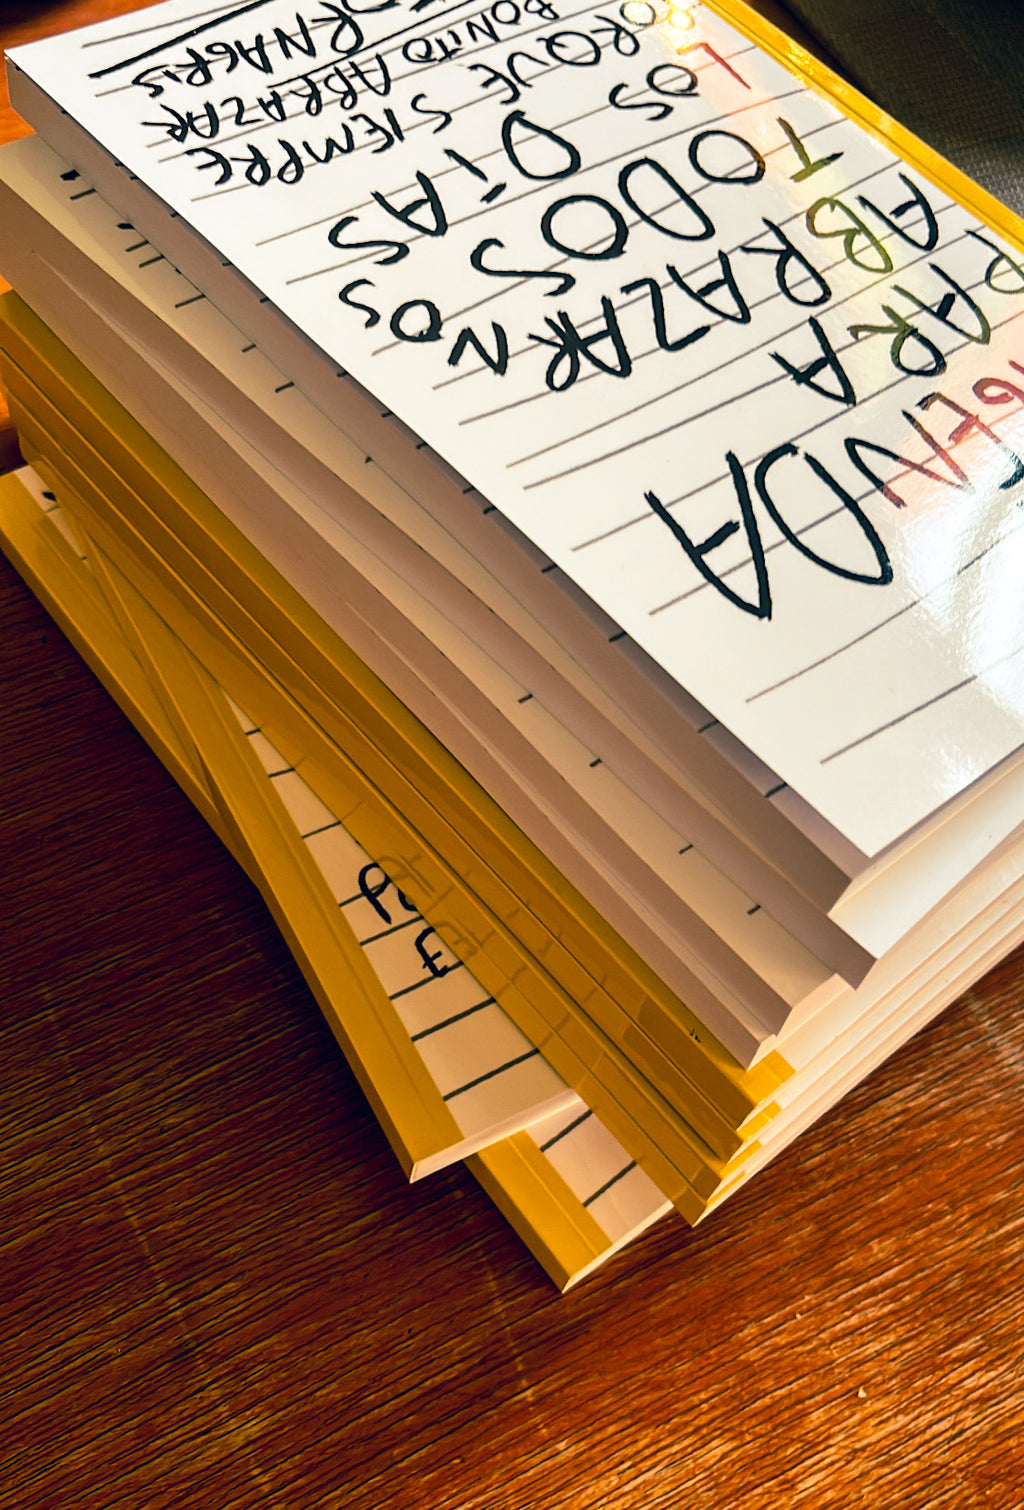 GENDA
PARA
ABRAZARNOS
TODOS
LOS DÍAS
PORQUE SIEMPRE
BONITO ABRAZAR